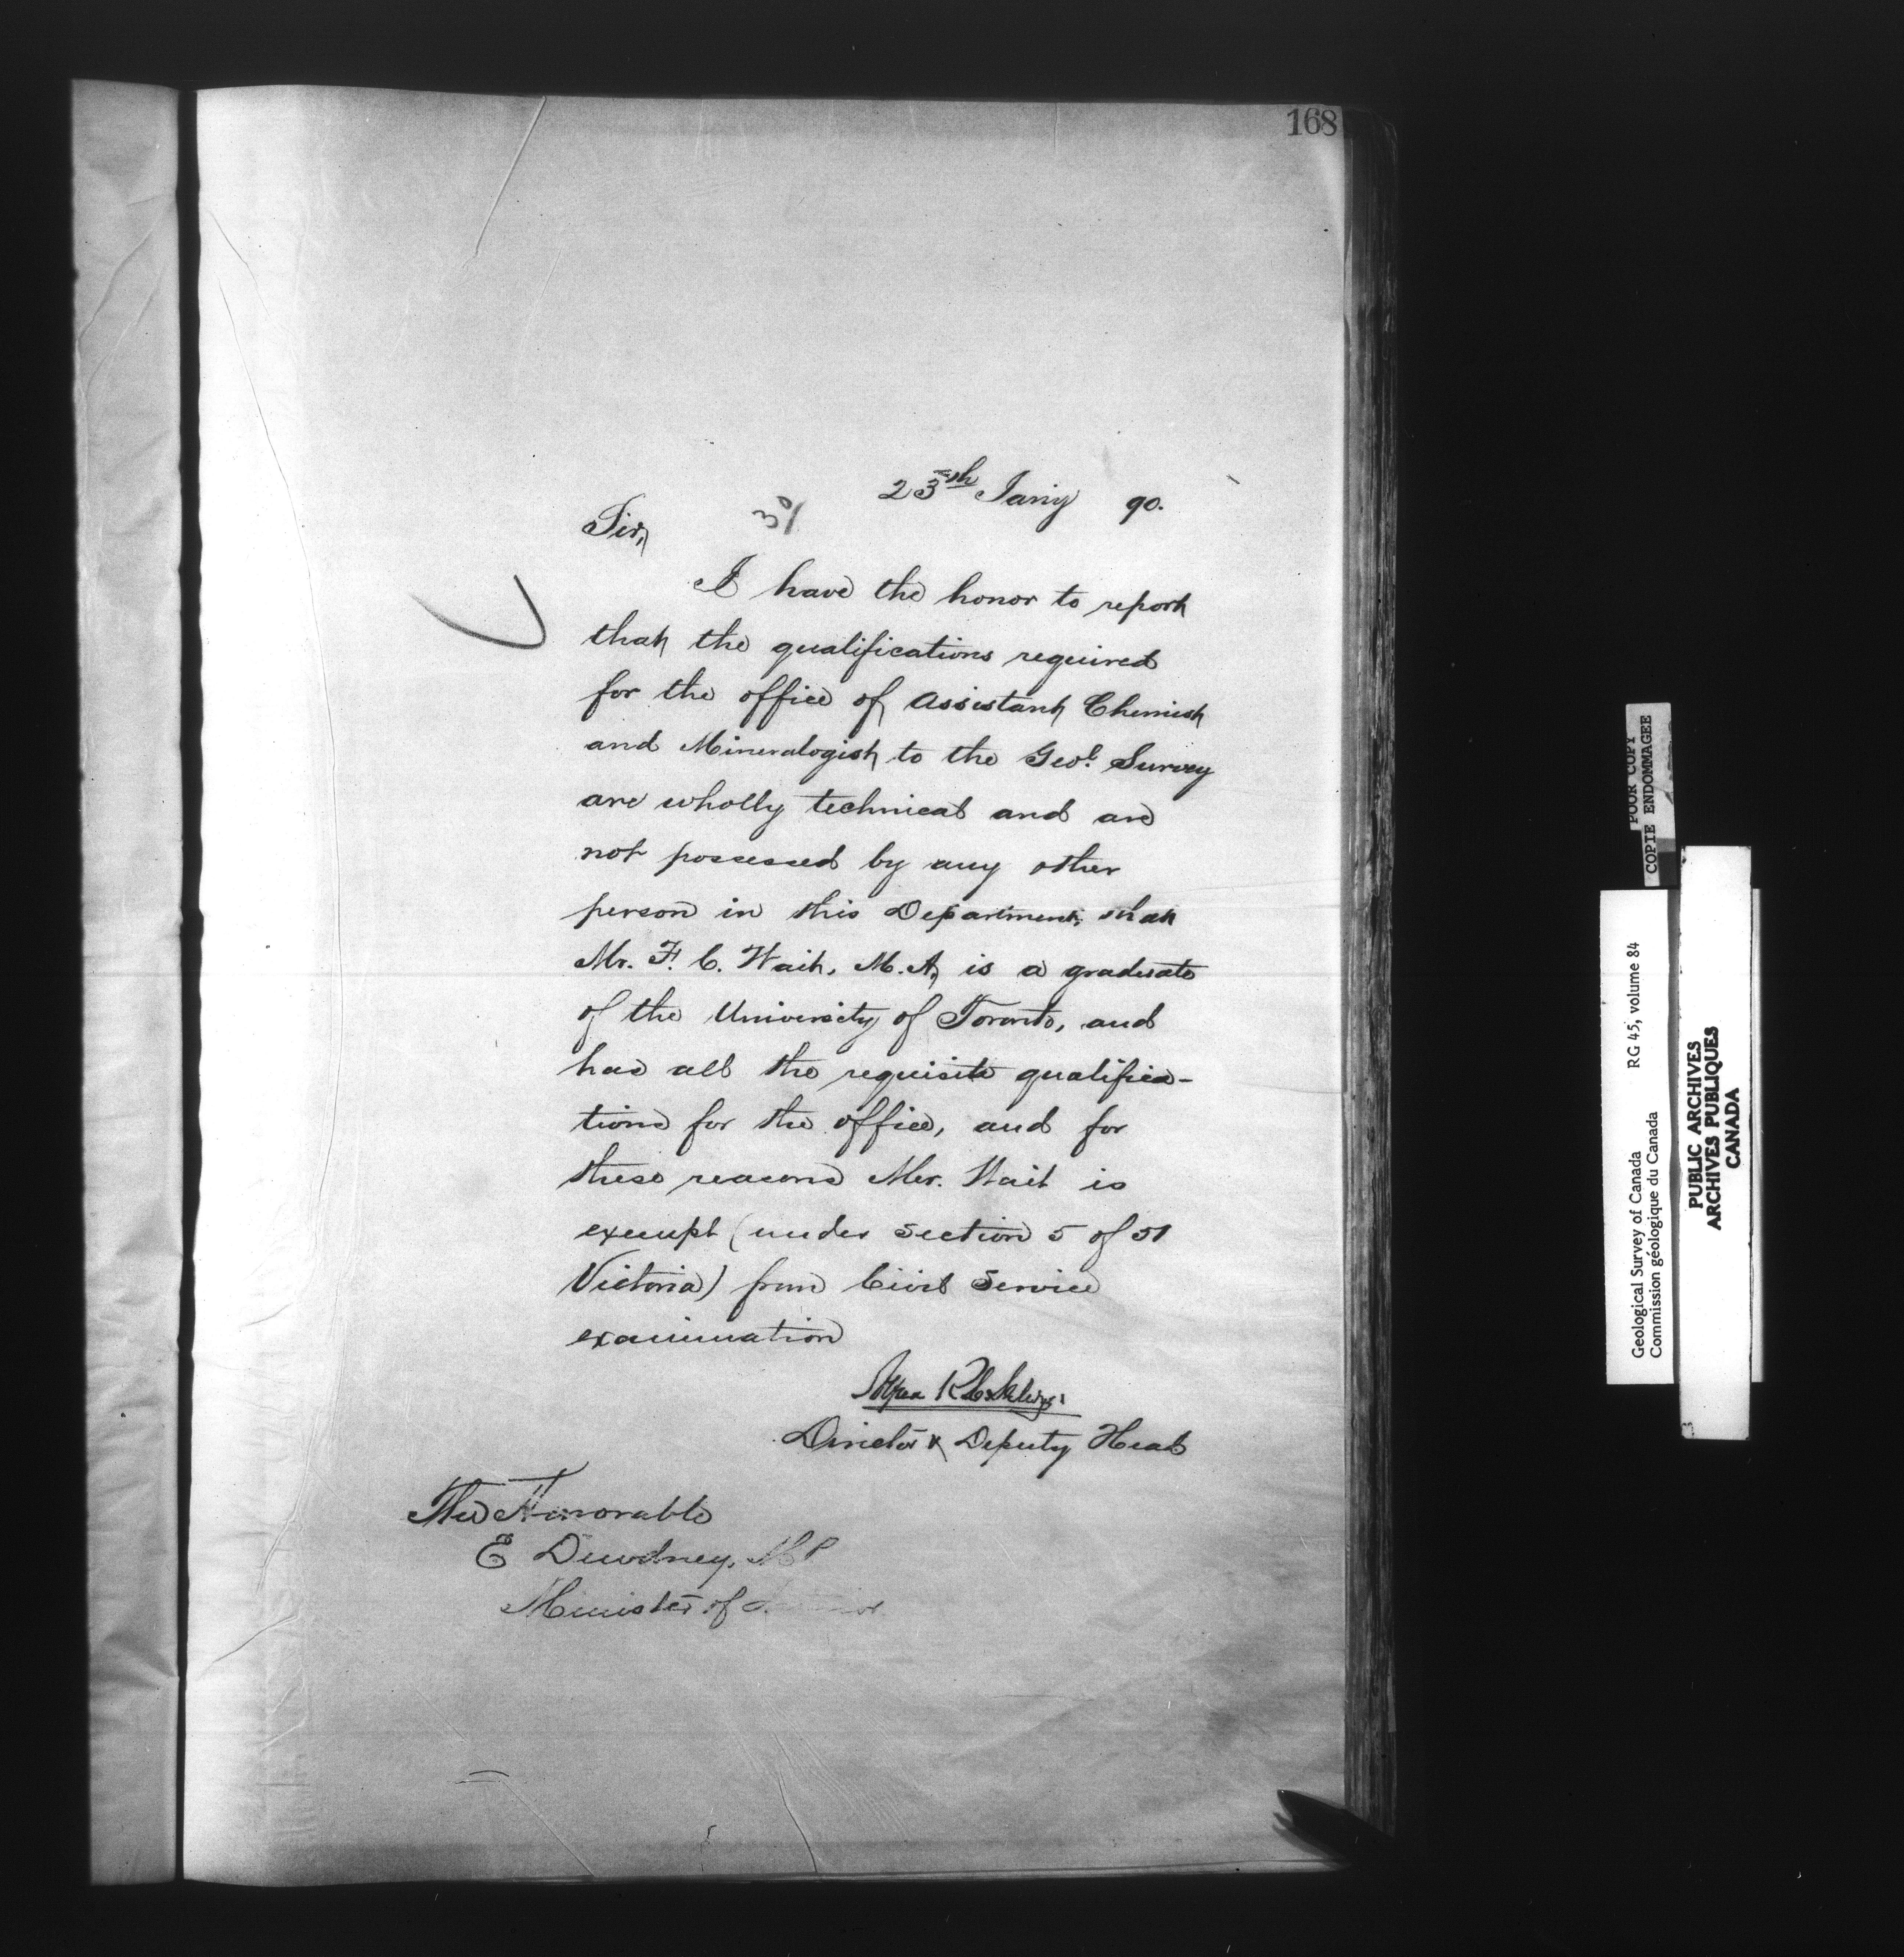 168
23th Jany 90.
Sir,
I have the honor to report
that the qualifications required
for the office of Assistant Chemist
and Mineralogist to the Geol. Survey
are wholly technical and are
not possessed by any other
person in this Department; that
Mr. F. C. Wait, M.A, is a graduate
of the University of Toronto, and
has all the requisite qualifica-
tions for the office, and for
these reasons Mr. Wait is
exempt (under section 5 of 51
Victoria) from Civil Service
examination
Director & Deputy Head
The Honorable
E Dewdney, MP
Minister of
POOR COPY
COPIE ENDOMMAGEE
Geological Survey of Canada RG 45, volume 84
Commission géologique du Canada
PUBLIC ARCHIVES
ARCHIVES PUBLIQUES
CANADA